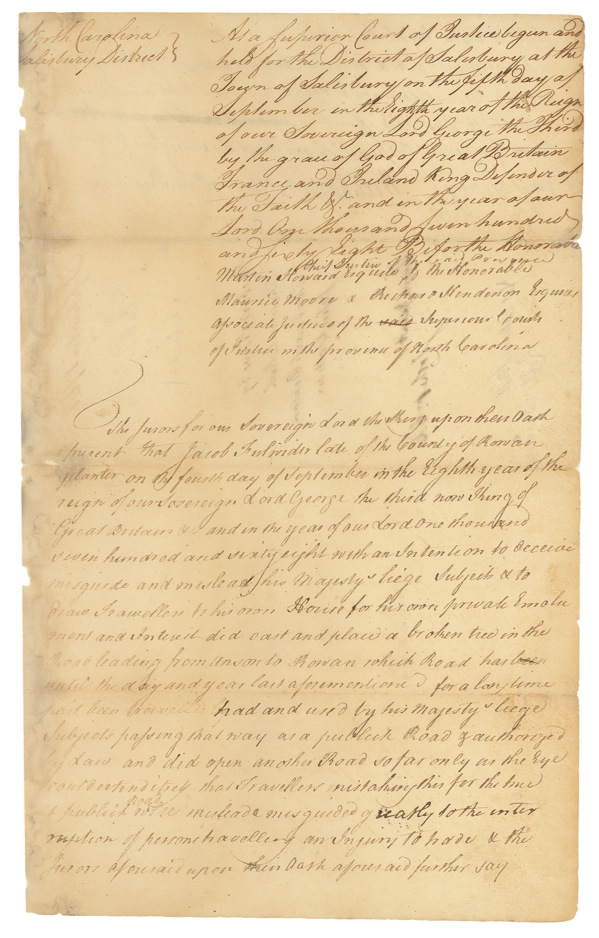 North Carolina
Salisbury District
At a Superior Court of Justice begun and
held for the District of Salisbury at the
Town of Salisbury on the fifth day of
September in the Eighth year of the Reign
of our Sovereign Lord George the Third
by the grace of God of Great Britain
France and Ireland King Defender of
the Faith &c. and in the year of our
Lord One thousand seven hundred
and sixty Eight Before the Honorable
Martin Howard Esquire Chief Justice of the Honorable
Maurice Moore & Richard Henderson Esquires
Associate Justices of the said Superior Courts
of Justice in the province of North Carolina
The Jurors for our Sovereign Lord the King upon their Oath
present that Jacob Fulwider late of the County of Rowan
planter on the fourth day of September in the Eighth year of the
reign of our Sovereign Lord George the third now King of
Great Britain &c and in the year of our Lord One thousand
seven hundred and sixty eight with an Intention to deceive
misguide and mislead his Majesty's liege Subjects & to
draw Travellers to his own House for his own private Emolu
ment and Interest did cast and place a broken tree in the
Road leading from Anson to Rowan which Road has been
until the day and year last aforementioned for a long time
had and used by his Majesty's liege
Subjects passing that way as a publick Road & authorized
by Law and did open another Road so far only as the Eye
could extend itself that Travellers mistaking this for the true
& publick Road were mislead & misguided greatly to the inter
ruption of persons travelling an Injury to trade & the
Jurors aforesaid upon their Oath aforesaid further say